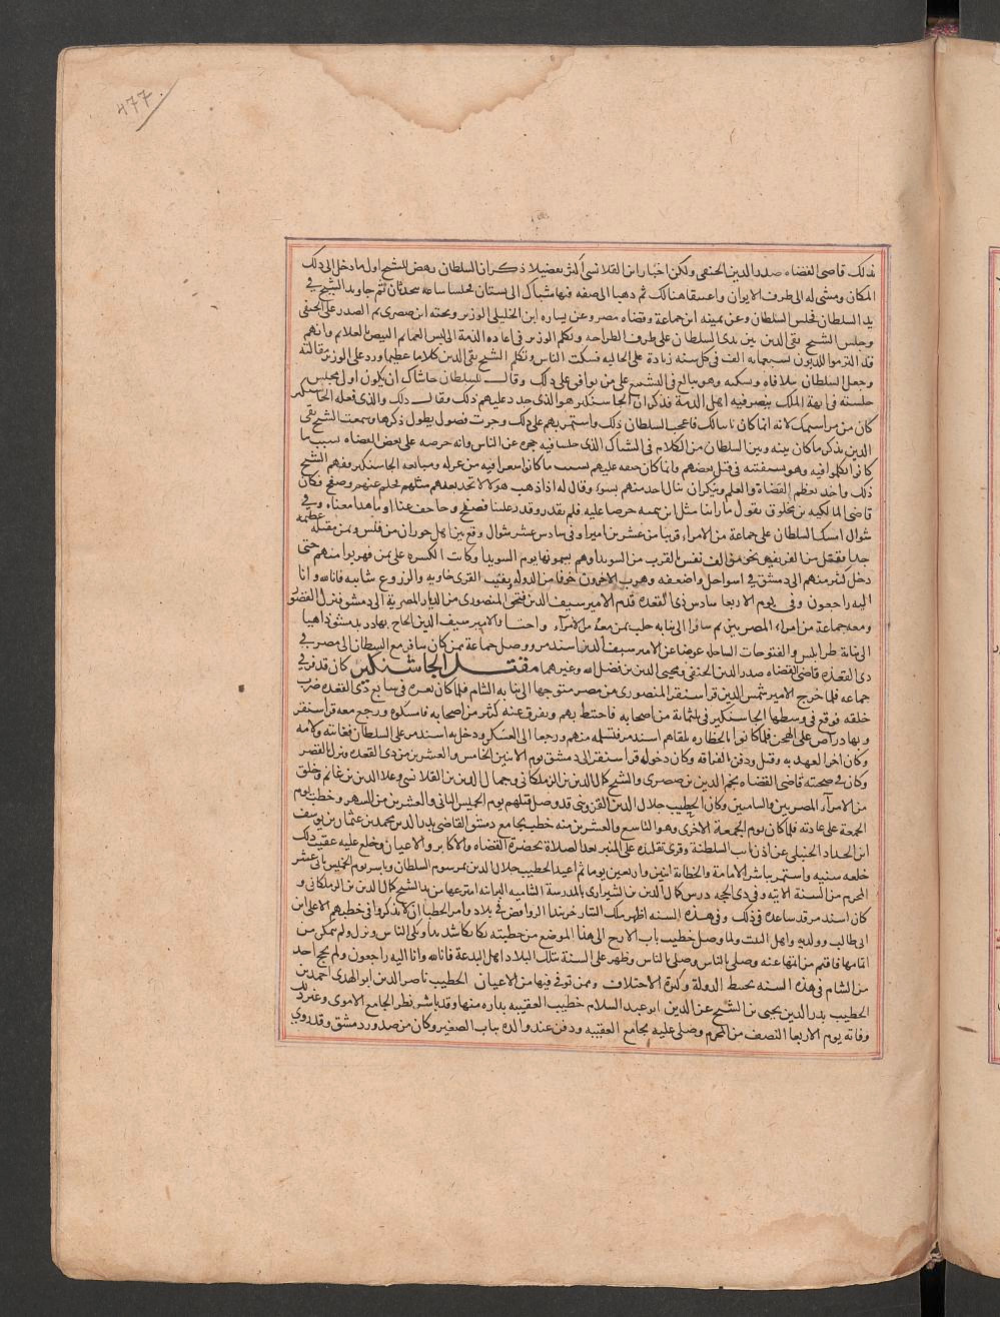 ٤٧٧
ذلك قاضي القضاه صدر الدين الحنفي ولكن اخبار ابن القلانسي اكثر تفصيلا ذكر ان السلطان نهض للشيخ اول ما دخل الى ذلك
المكان ومشى له الى طرف الايوان واعتنقا هنالك ثم ذهبا الى صفه فيها شباك الى بستان فجلسا ساعه يتحدثان ثم جا ويد الشيخ في
يد السلطان فجلس السلطان وعن يمينه ابن جماعة وقضاه مصر وعن يساره ابن الخليلي الوزير وتحته ابن صصرى ثم الصدر على الحنفي
وجلس الشيخ تقي الدين بين يدى السلطان على طرف الطراحه وتكلم الوزير في اعاده الذمة الى لبس العمائم البيض بالعلائم وانهم
قد التزموا للديون بسبعمايه الف في كل سنه زيادة على الحاليه فسكت الناس وتكلم الشيخ تقي الدين كلاما عظيما ورد على الوزير مقالته
وجعل السلطان يتلافاه ويسكته وهو يبالغ في التشنيع على من يوافق على ذلك وقال للسلطان حاشاك ان يكون اول مجلس
جلسته في ابهة الملك ينصر فيه اهل الذمة فذكر ان الجاشنكير هو الذى جدد عليهم ذلك فقال ذلك والذى فعله الجاشنكير
كان من مراسيمك لانه انما كان نايبا لك فاعجب السلطان ذلك واستمر بهم على ذلك وجرت فصول يطول ذكرها وسمعت الشيخ تقي
الدين يذكر ما كان بينه وبين السلطان من الكلام في الشباك الذى جلسا فيه عن الناس وانه حرصه على بعض القضاه بسبب ما
كانوا تكلموا فيه وهو يستفتيه في قتل بعضهم وانما كان حنقه عليهم بسبب ما كانوا سعوا فيه من عزله ومبايعه الجاشنكير ففهم الشيخ
ذلك واخذ يعظم القضاة والعلم وينكر ان ينال احد منهم بسوء وقال له اذا ذهب هولا لا تجد بعدهم مثلهم فحلم عنهم وصفح فكان
قاضي المالكيه بن مخلوق يقول ما راينا مثل ابن تيميه حرصا عليه فلم نقدر وقدر علينا فصفح وحاجف عنا او ما هذا معناه وفي
شوال امسك السلطان على جماعة من الامراء قريبا من عشرين اميرا وفي سادس عشر شوال وقع بين اهل حوران من قيس ويمن مقتله عظيمه
جدا فقتل من الفريقين نحو من الف نفس بالقرب من السويدا وهم يسمونها يوم السويدا وكانت الكسره على يمن فهربوا منهم حتى
دخل كثير منهم الى دمشق في اسوا حال واضعفه وهرب الاخرون خوفا من الدوله وبقيت القرى خاويه والزروع سايبه فانالله وانا
اليه راجعون وفي يوم الاربعا سادس ذى القعده قدم الامير سيف الدين قبجق المنصورى من الديار المصرية الى دمشق فنزل القصور
ومعه جماعة من امراء المصريين ثم سافر الى نيابه حلب بمن معه من الامراء واجتاز الامير سيف الدين الحاج بهادر بدمشق ذاهبا
الى نيابة طرابلس والفتوحات الساحليه عوضا عن الامير سيف الدين اسندمر ووصل جماعة ممن كان سافر مع السلطان الى مصر في
ذى القعده قاضي القضاه صدر الدين الحنفي ومحيي الدين بن فضل الله وغيرهما مقتل الجاشنكير كان قد فر في
جماعه فلما خرج الامير شمس الدين قراسنقر المنصورى من مصر متوجها الى نيابه الشام فلما كان بغزه في سابع ذى القعده ضرب
خلقه فوقع في وسطها الجاشنكير في ثلثمائة من اصحابه فاحتيط بهم وتفرق عنه كثير من اصحابه فامسكوه ورجع معه قراسنقر
وبهادراص على الهجن فلما كانوا الخطاره تلقاهم اسندمر فتسلمه منهم ورجعا الى العسكر ودخل به اسندمر على السلطان فعاتبه ولامه
وكان اخر العهد به وقتل ودفن القرافه وكان دخول قراسنقر الى دمشق يوم الاثنين الخامس والعشرين من ذى القعده ونزل القصر
وكان في صحبته قاضي القضاه نجم الدين بن صصرى والشيخ كمال الدين بن الزملكاني وجمال الدين بن القلانسي وعلا الدين بن غانم وخلق
من الامراء المصريين والشاميين وكان الخطيب جلال الدين القزويني قد وصل قبلهم يوم الخميس الثاني والعشرين من الشهر وخطب يوم
الجمعة على عادته فلما كان يوم الجمعة الاخرى وهو التاسع والعشرين منه خطب بجامع دمشق القاضي بدر الدين محمد بن عثمان بن يوسف
ابن الحداد الحنبلي عن اذن نايب السلطنة وقرى تقليده على المنبر بعد الصلاة بحضرة القضاه والاكابر والاعيان وخلع عليه عقيب ذلك
خلعه سنيه واستمر يباشر الامامة والخطابة اثنين واربعين يوما ثم اعيد الخطيب جلال الدين بمرسوم السلطان وباشر يوم الخميس ثاني عشر
المحرم من السنة الاتيه وفي ذى الحجه درس كمال الدين بن الشيرازى بالمدرسة الشاميه البرانيه انتزعها من يد الشيخ كمال الدين بن الزملكاني و
كان اسندمر قد ساعده في ذلك وفي هذه السنه اظهر ملك التتار خربندا الروافض في بلاده وامر الخطبا ان لا يذكروا في خطبهم الا على ابن
ابي طالب وولديه واهل البيت ولما وصل خطيب باب الازج الى هذا الموضع من خطبته بكا بكا شديدا وبكى الناس ونزل ولم يتمكن من
اتمامها فاقيم من اتمها عنه وصلى بالناس وصلى بالناس وظهر على السنة بتلك البلاد اهل البدعة فانالله وانا اليه راجعون ولم يحج احد
من الشام في هذه السنه بحبط الدولة وكثرة الاختلاف وممن توفي فيها من الاعيان الخطيب ناصر الدين ابو الهدى احمد بن
الخطيب بدر الدين يحيى بن الشيخ عز الدين ابو عبد السلام خطيب العقيبه بداره منها وقد باشر نظر الجامع الاموى وغير ذلك
وفاته يوم الاربعا النصف من المحرم وصلى عليه بجامع العقيبه ودفن عند والده بباب الصغير وكان من صدور دمشق وقد روى